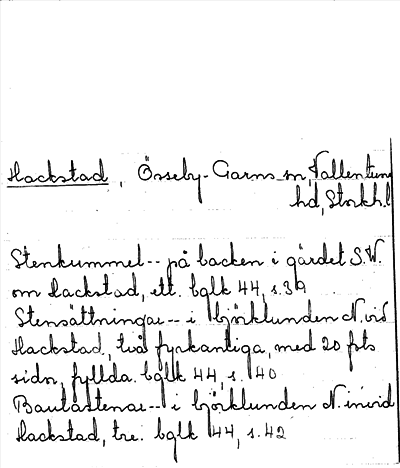 Hackstad, Össeby-Garns sn, Vallentuna
hd, Stockh.l
Stenkummel-- på backen i gärdet S.W.
om Hackstad, ett. bglk 44, s.39
Stensättningar-- i björklunden N. vid
Hackstad, två fyrkantiga, med 20 fots
sidor, fyllda. bglk 44, s. 40
Bautastenar-- i björklunden N. invid
Hackstad, tre. bglk 44, s.42